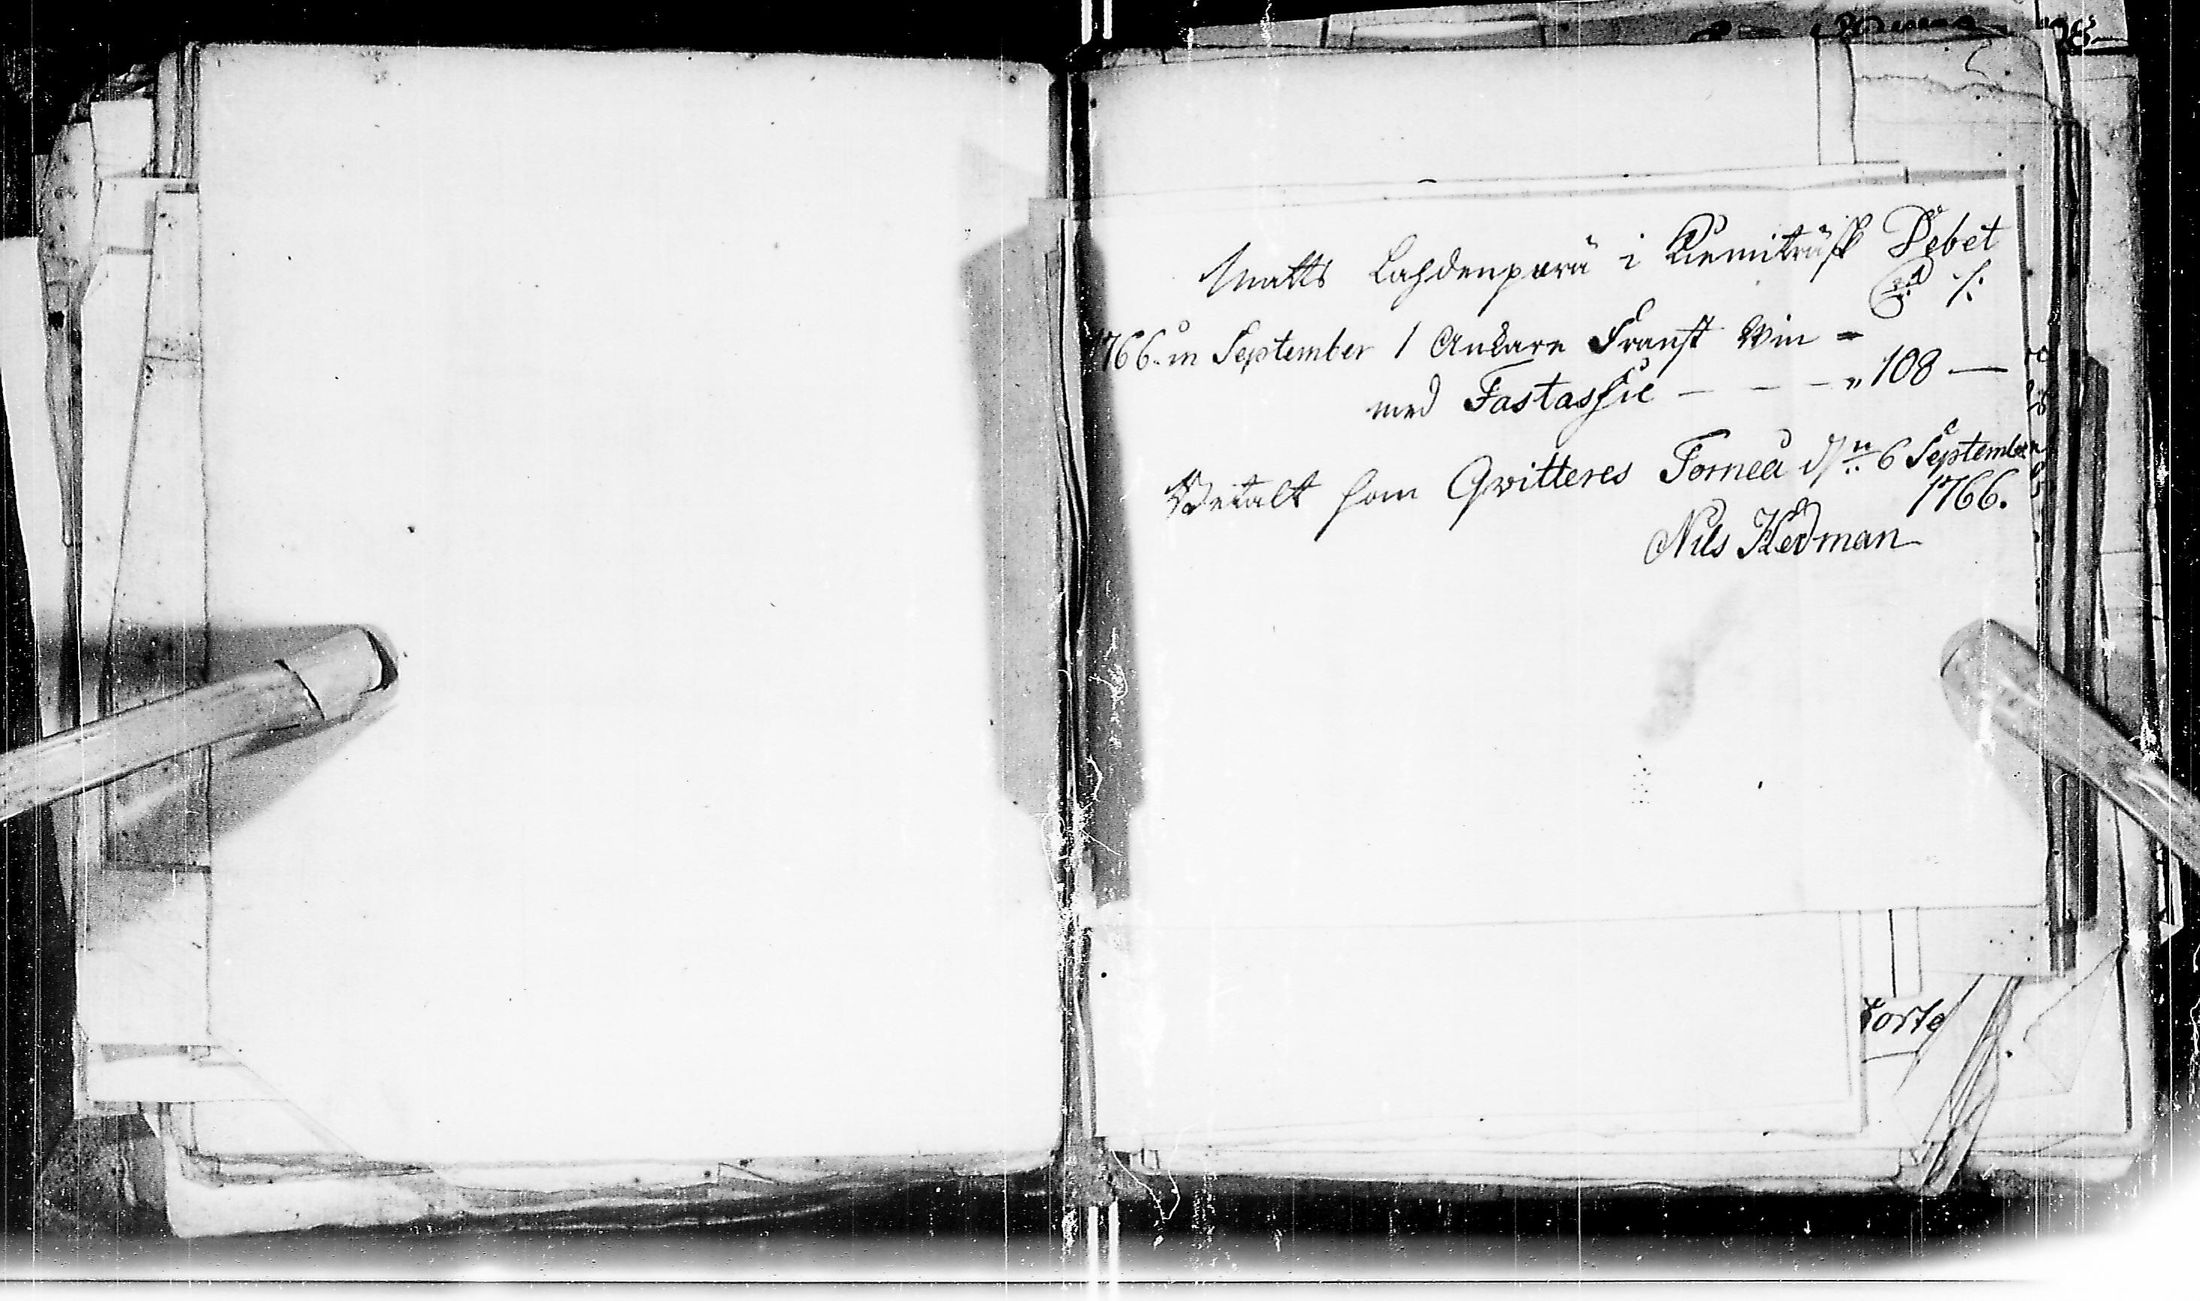 Matts Lahdenperä i Kiemiträsk Debet
1766. in September 1 Ankare Franst Win =
med Fastasche - - - " 108 —
Betalt som Qvitteres Torneå d:n 6 September
1766.
Nils Hedman
torte